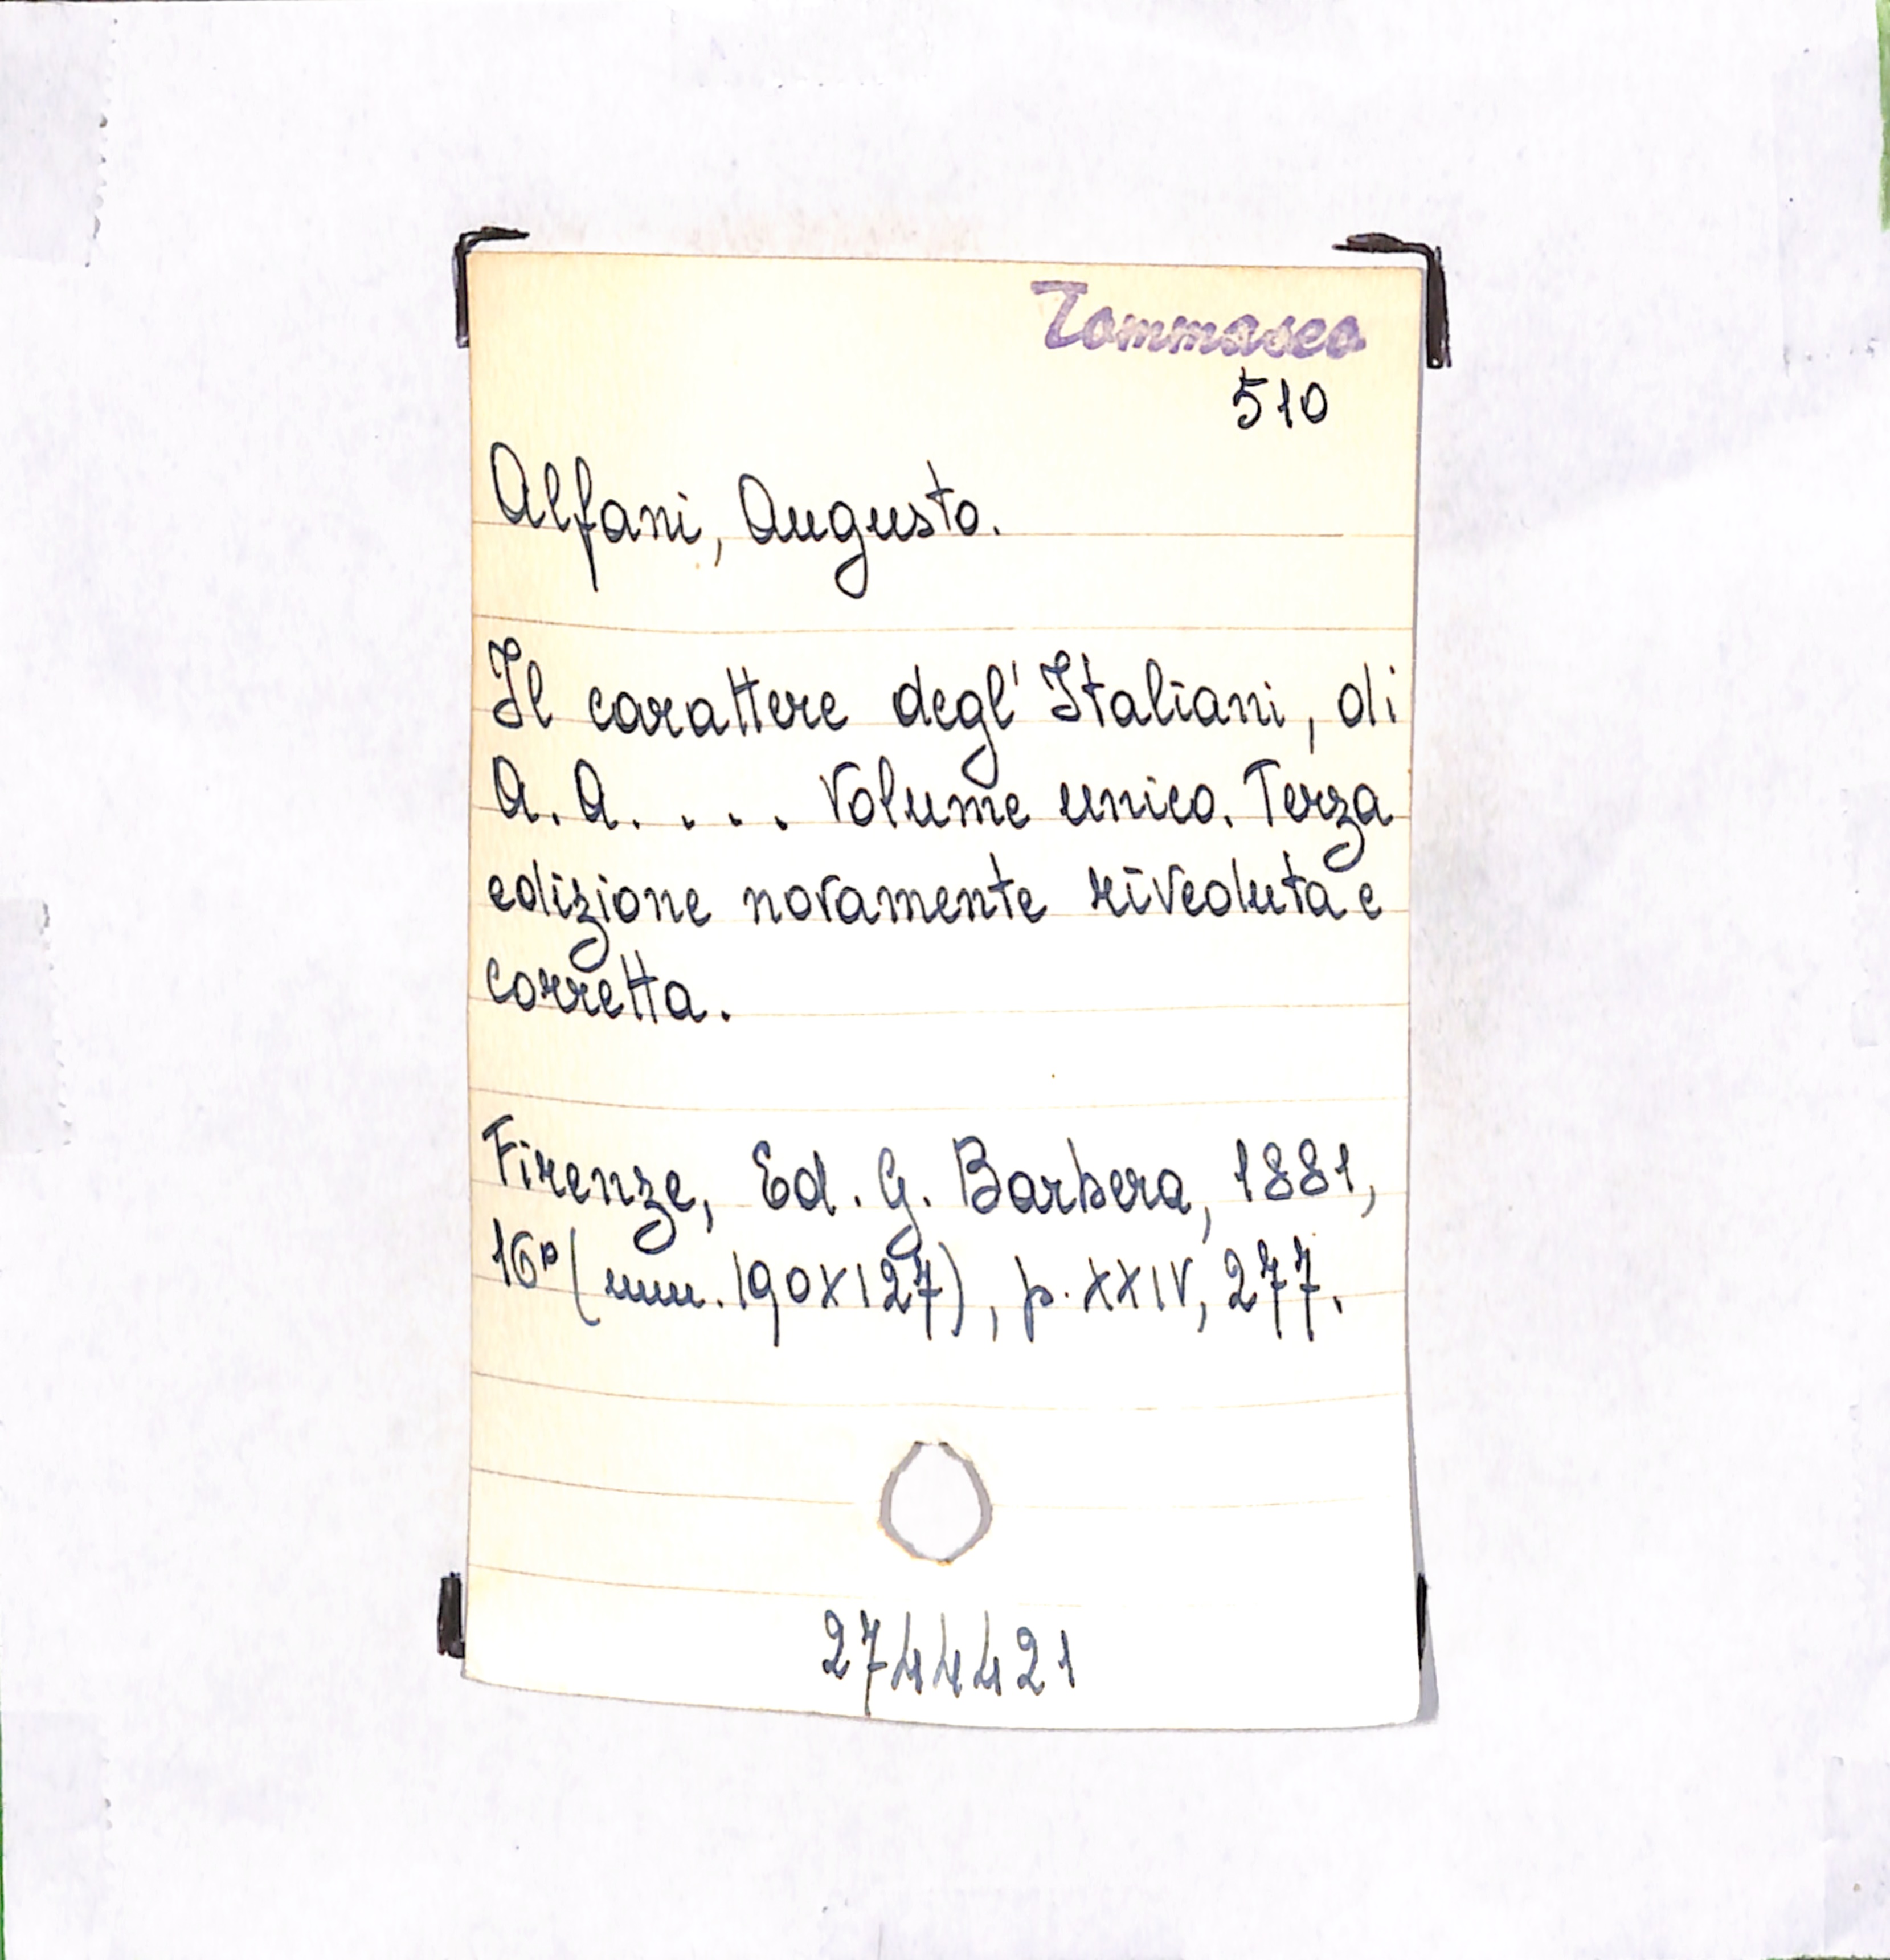 Tommaseo
510
Alfani, Augusto.
Il carattere degl' Italiani, di
A. A. . . . Volume unico. Terza
edizione novamente riveduta e
corretta.
Firenze, Ed. G. Barbera, 1881,
16° (mm. 190x127), p. XXIV, 277.
2744421